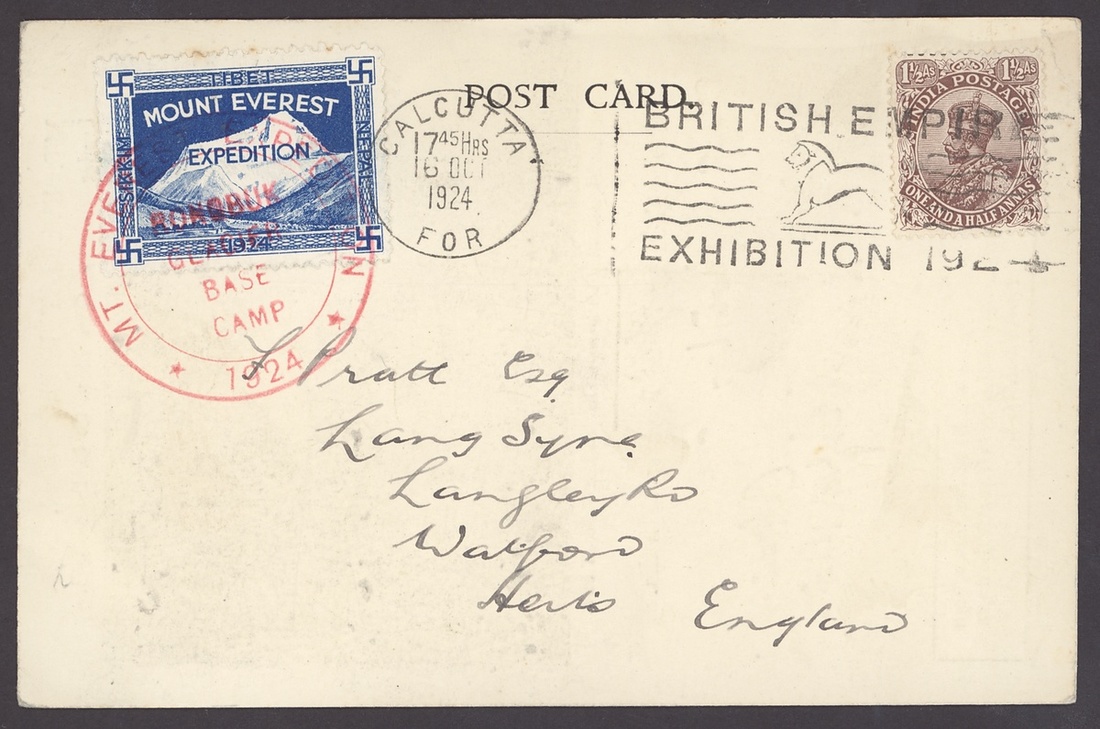 POST CARD.
TIBET
MOUNT EVEREST
EXPEDITION
SIKKIM
NEPAL
1924
MT. EVEREST EXPEDITION
RONGBUK
GLACIER
BASE
CAMP
1924
CALCUTTA
17 45 HRS
16 OCT
1924
FOR
BRITISH EMPIR
EXHIBITION 192
1½ As 1½ As
INDIA POSTAGE
ONE AND A HALF ANNS
Pratt Esq
Lang Syne
Langley Rd
Watford
Herts
England